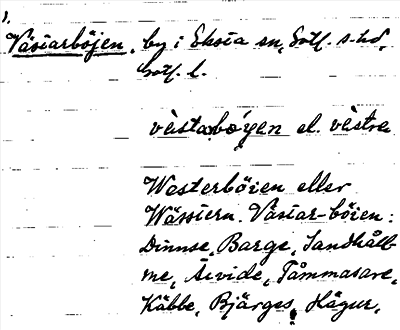 1.
Väsiarböjen, by i Eksta sn, Gotl. s. hd,
Gotl. l.
västabo̡yen el. västra
Westerböien eller
Wässiern. Väsiar-böien:
Dinnse, Barge, Sandhålt
me, Äivide, Tåmmasare,
Käbbe, Bjärges, Hägur,